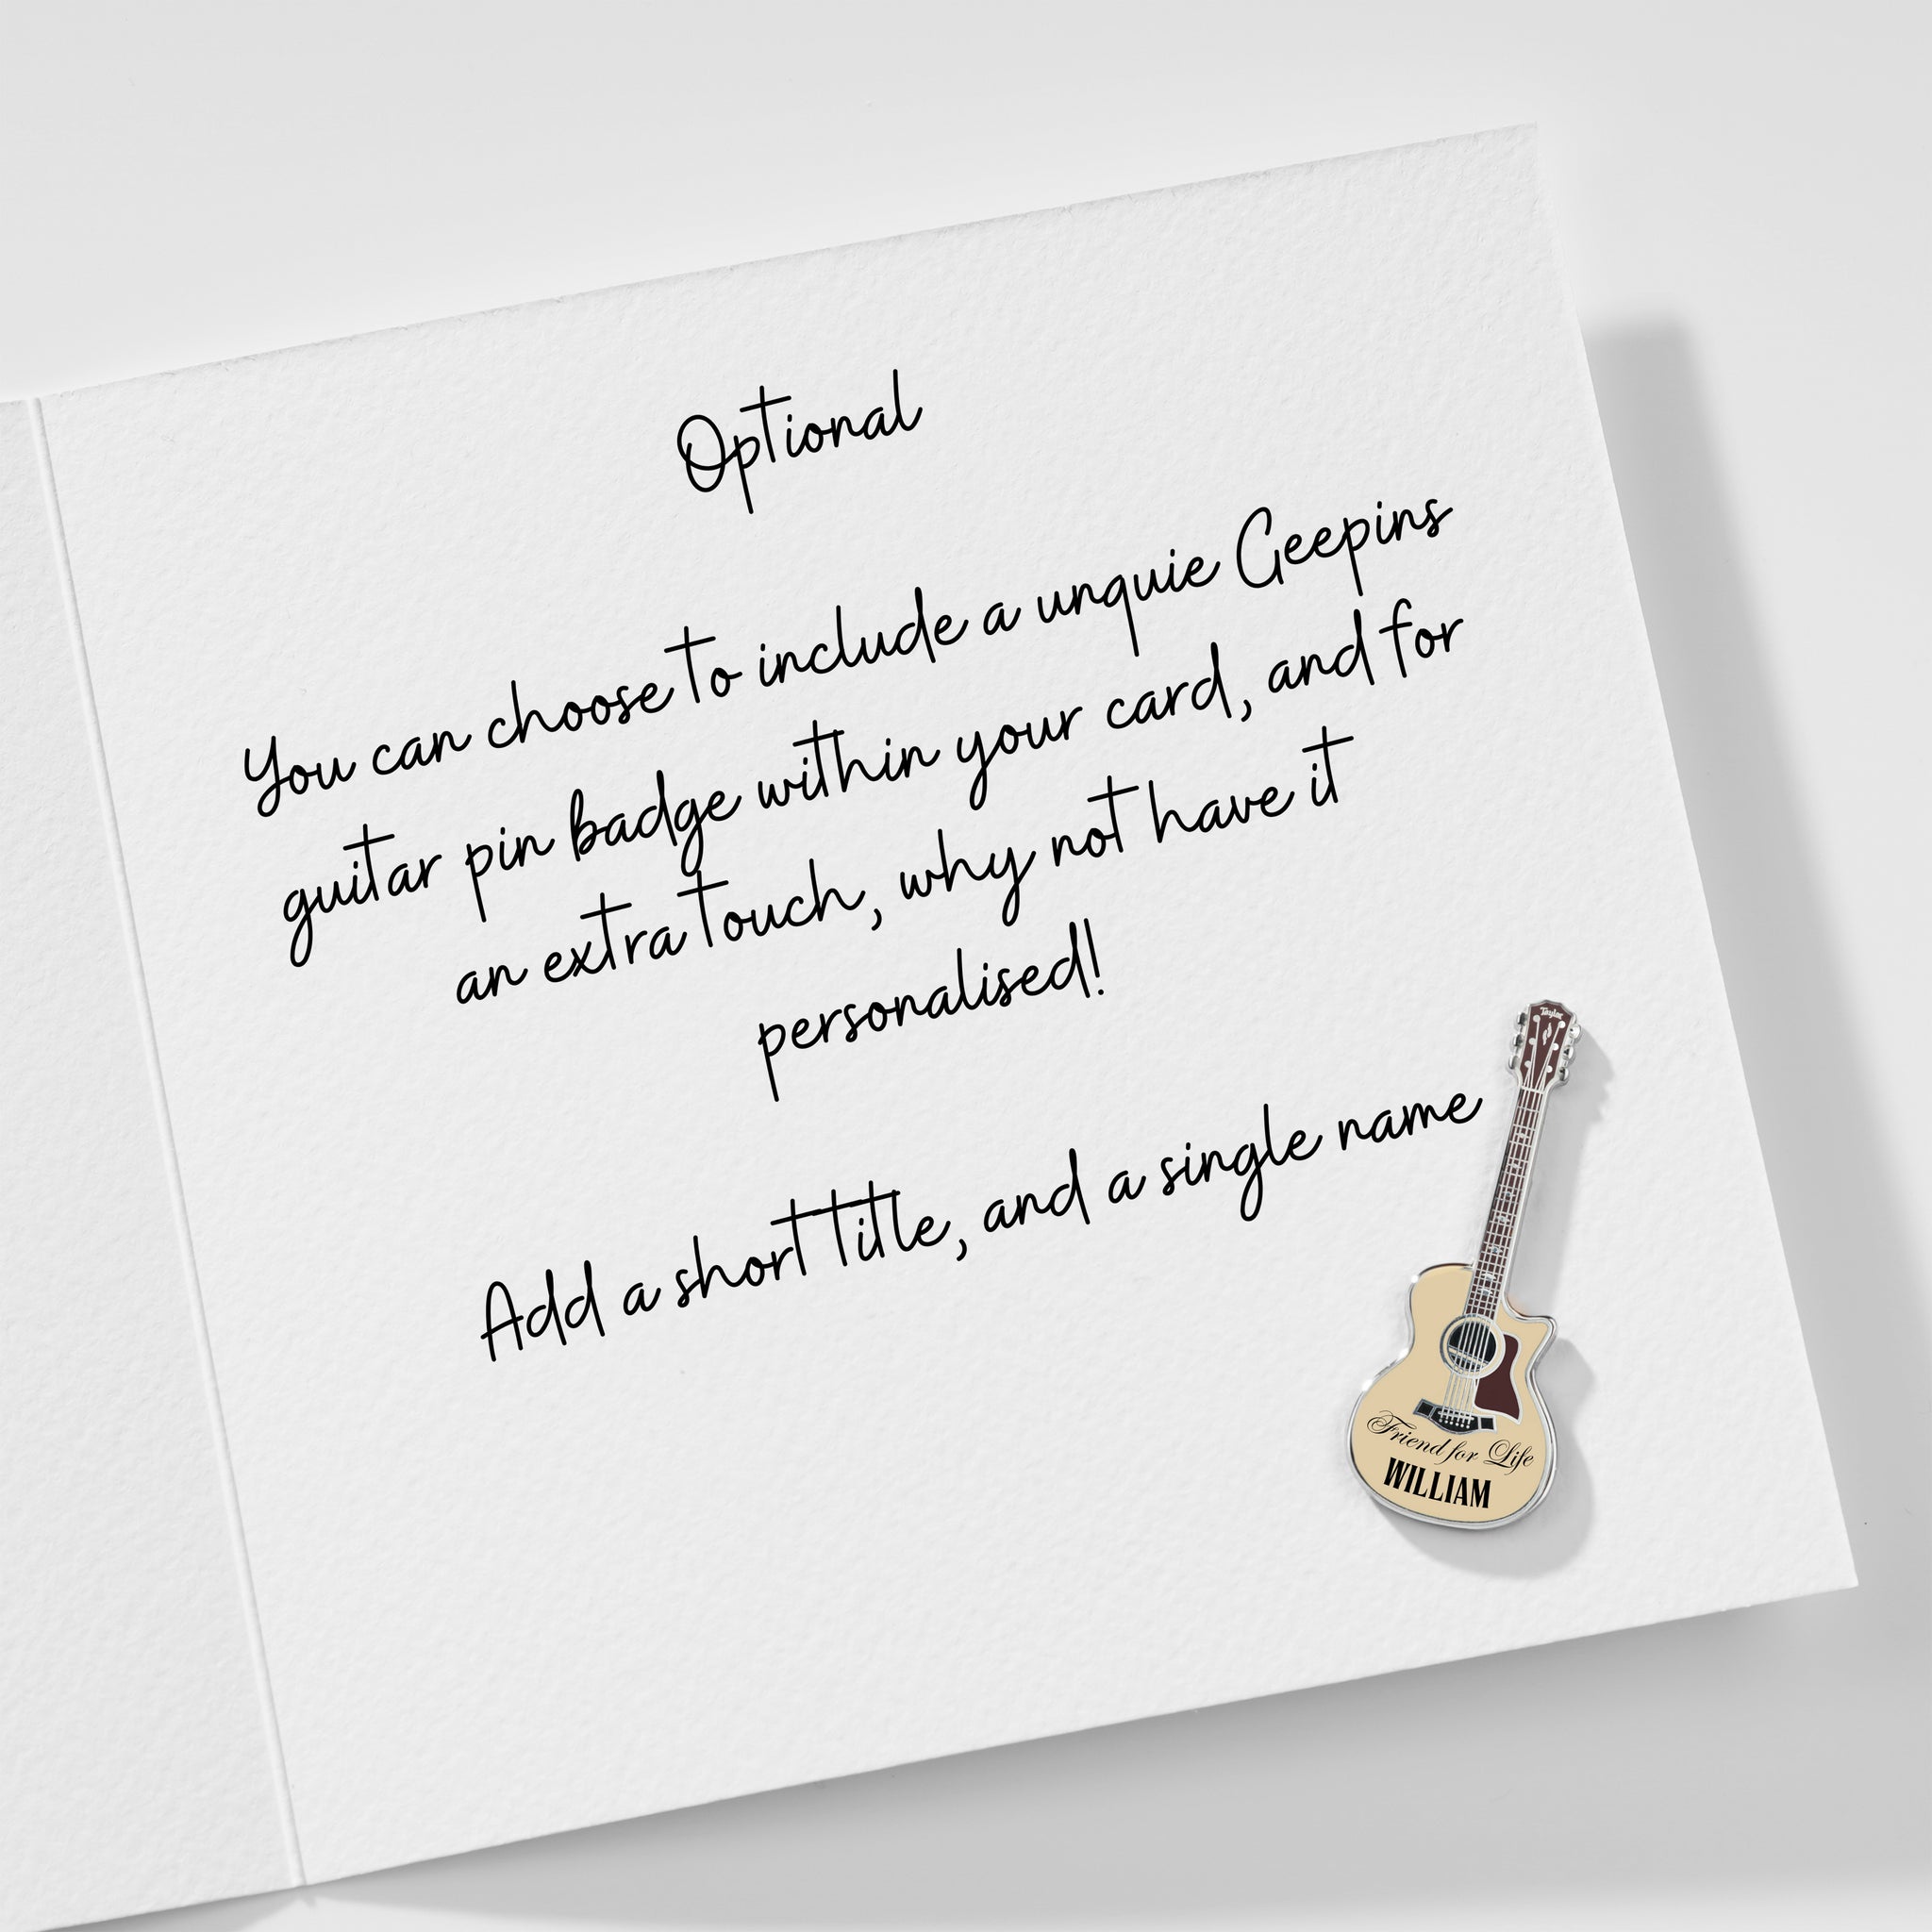 Optional
You can choose to include a unquie Geepins
guitar pin badge within your card, and for
an extra touch, why not have it
personalised!
Add a short title, and a single name
Taylor
Friend for Life
WILLIAM